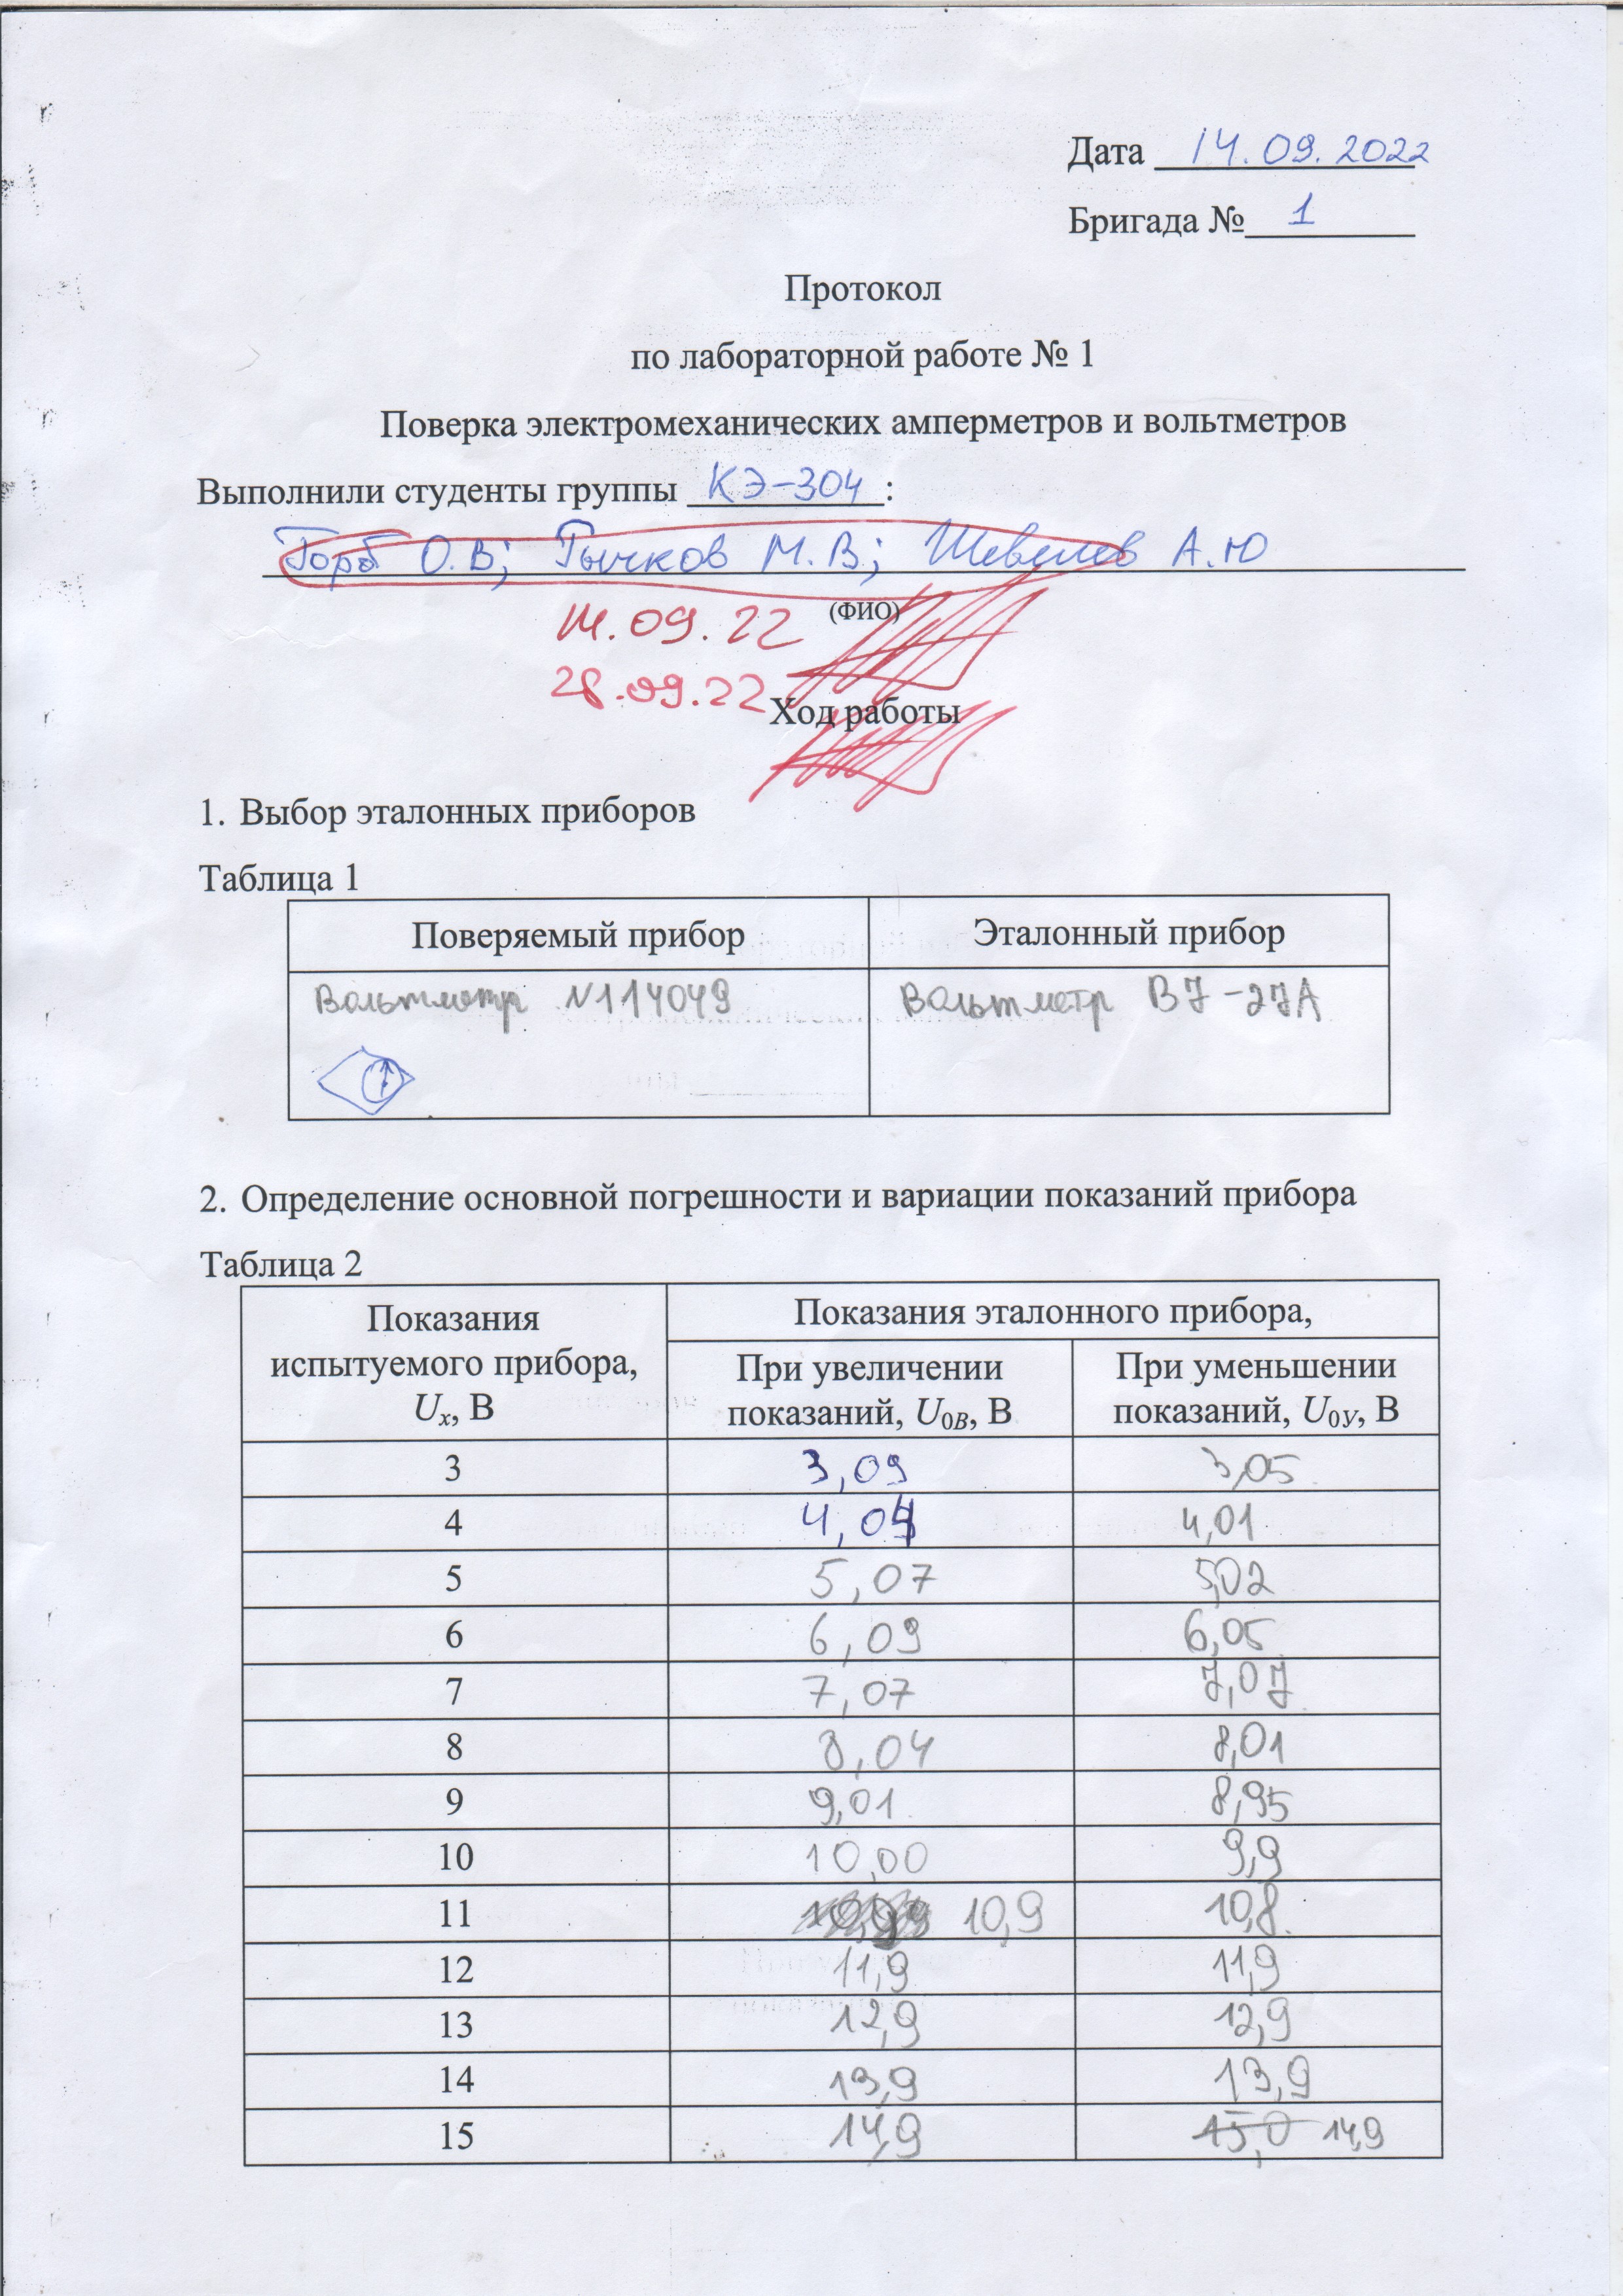 Дата 14.09.2022
Бригада № 1
Протокол
по лабораторной работе № 1
Поверка электромеханических амперметров и вольтметров
Выполнили студенты группы КЭ-304:
Горб О.В; Тычков М.В; Шевелев А.Ю
(ФИО)
14.09.22
28.09.22
Ход работы
1. Выбор эталонных приборов
Таблица 1
Поверяемый прибор Эталонный прибор
Вольтметр N114049 Вольтметр В7-27А
2. Определение основной погрешности и вариации показаний прибора
Таблица 2
Показания испытуемого прибора, Uх, В
Показания эталонного прибора,
При увеличении показаний, U0В, В
При уменьшении показаний, U0У, В
3 3,09 3,05
4 4,04 4,01
5 5,07 5,02
6 6,09 6,05
7 7,07 7,07
8 8,04 8,01
9 9,01 8,95
10 10,00 9,9
11 10,9 10,8
12 11,9 11,9
13 12,9 12,9
14 13,9 13,9
15 14,9 15,0 14,9